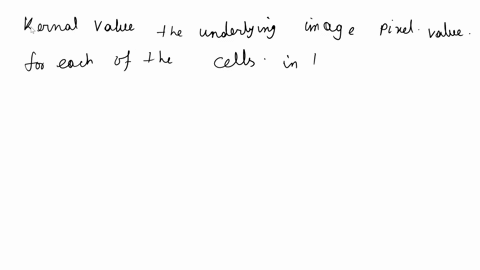 Kernal value the underlying image pixel. value.
for each of the cells. in